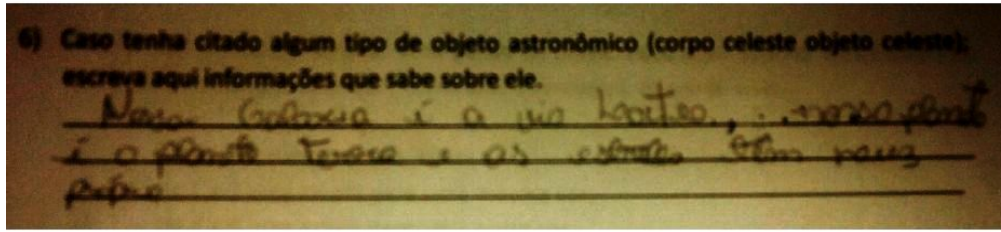 6) Caso tenha citado algum tipo de objeto astronômico (corpo celeste objeto celeste);
escreva aqui informações que sabe sobre ele.
Nossa Galaxia é a via Lactea, nossa planet
é o planeta Terra e as estrelas têm